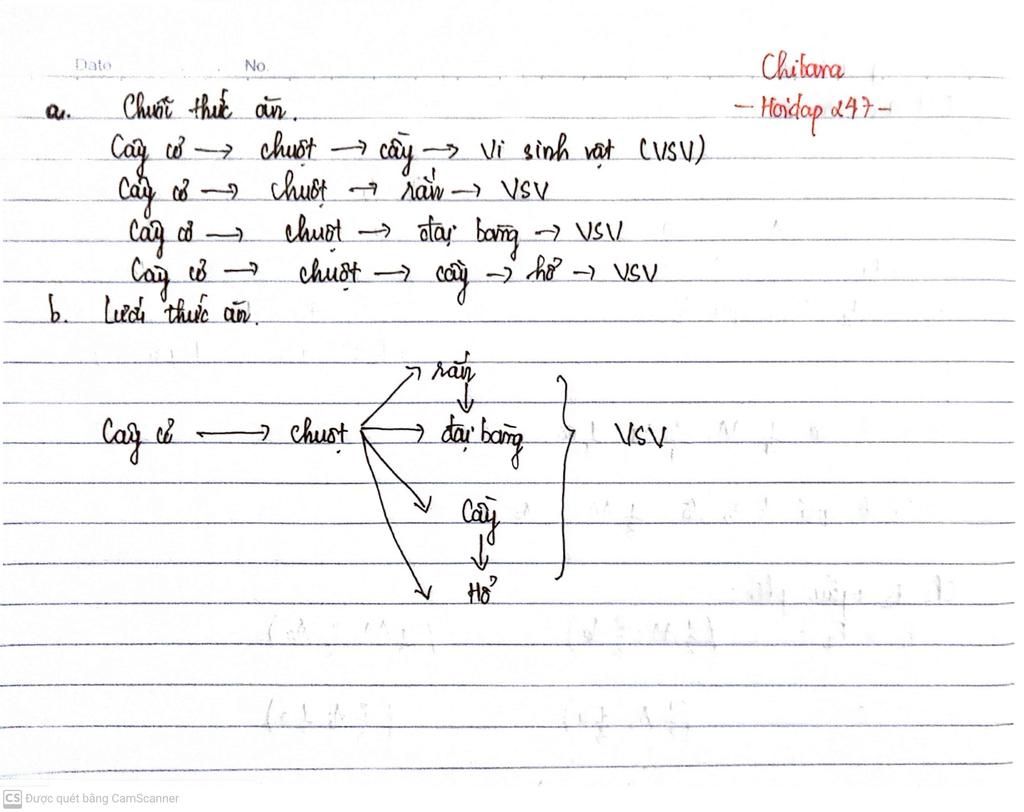 Date No.
Chitara
- Hoidap 247 -
a. Chuỗi thức ăn.
Cây cỏ → chuột → cầy → Vi sinh vật (VSV)
Cây cỏ → chuột → rắn → VSV
Cây cỏ → chuột → đại bàng → VSV
Cây cỏ → chuột → cầy → hổ → VSV
b. Lưới thức ăn.
rắn
Cây cỏ → chuột → đại bàng } VSV
Cầy
Hổ
CS Được quét bằng CamScanner